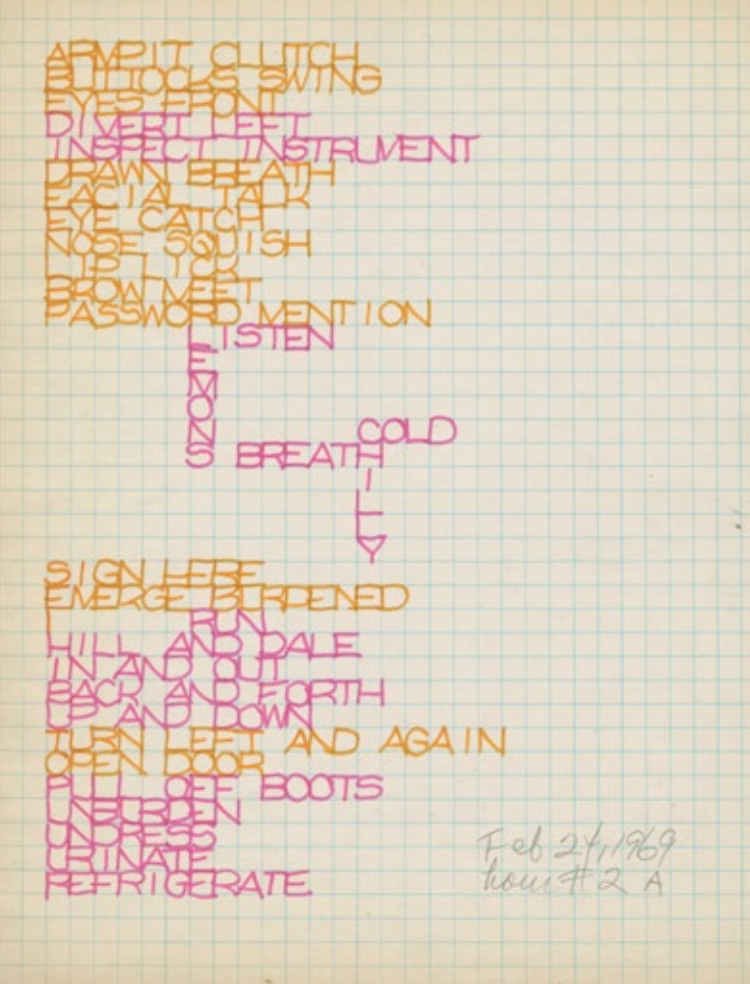 ARMPIT CLUTCH
BUTTOCKS SWING
EYES FRONT
DIVERT LEFT
INSPECT INSTRUMENT
DRAWN BREATH
FACIAL TALK
EYE CATCH
NOSE SQUISH
LIP LICK
BROW MEET
PASSWORD MENTION
LISTEN
E
M
O
N COLD
S BREATH
I
L
L
Y
SIGN HERE
EMERGE BURDENED
RUN
HILL AND DALE
IN AND OUT
BACK AND FORTH
UP AND DOWN
TURN LEFT AND AGAIN
OPEN DOOR
PULL OFF BOOTS
UNBURDEN
UNDRESS
URINATE
REFRIGERATE
Feb 24, 1969
hour # 2 A